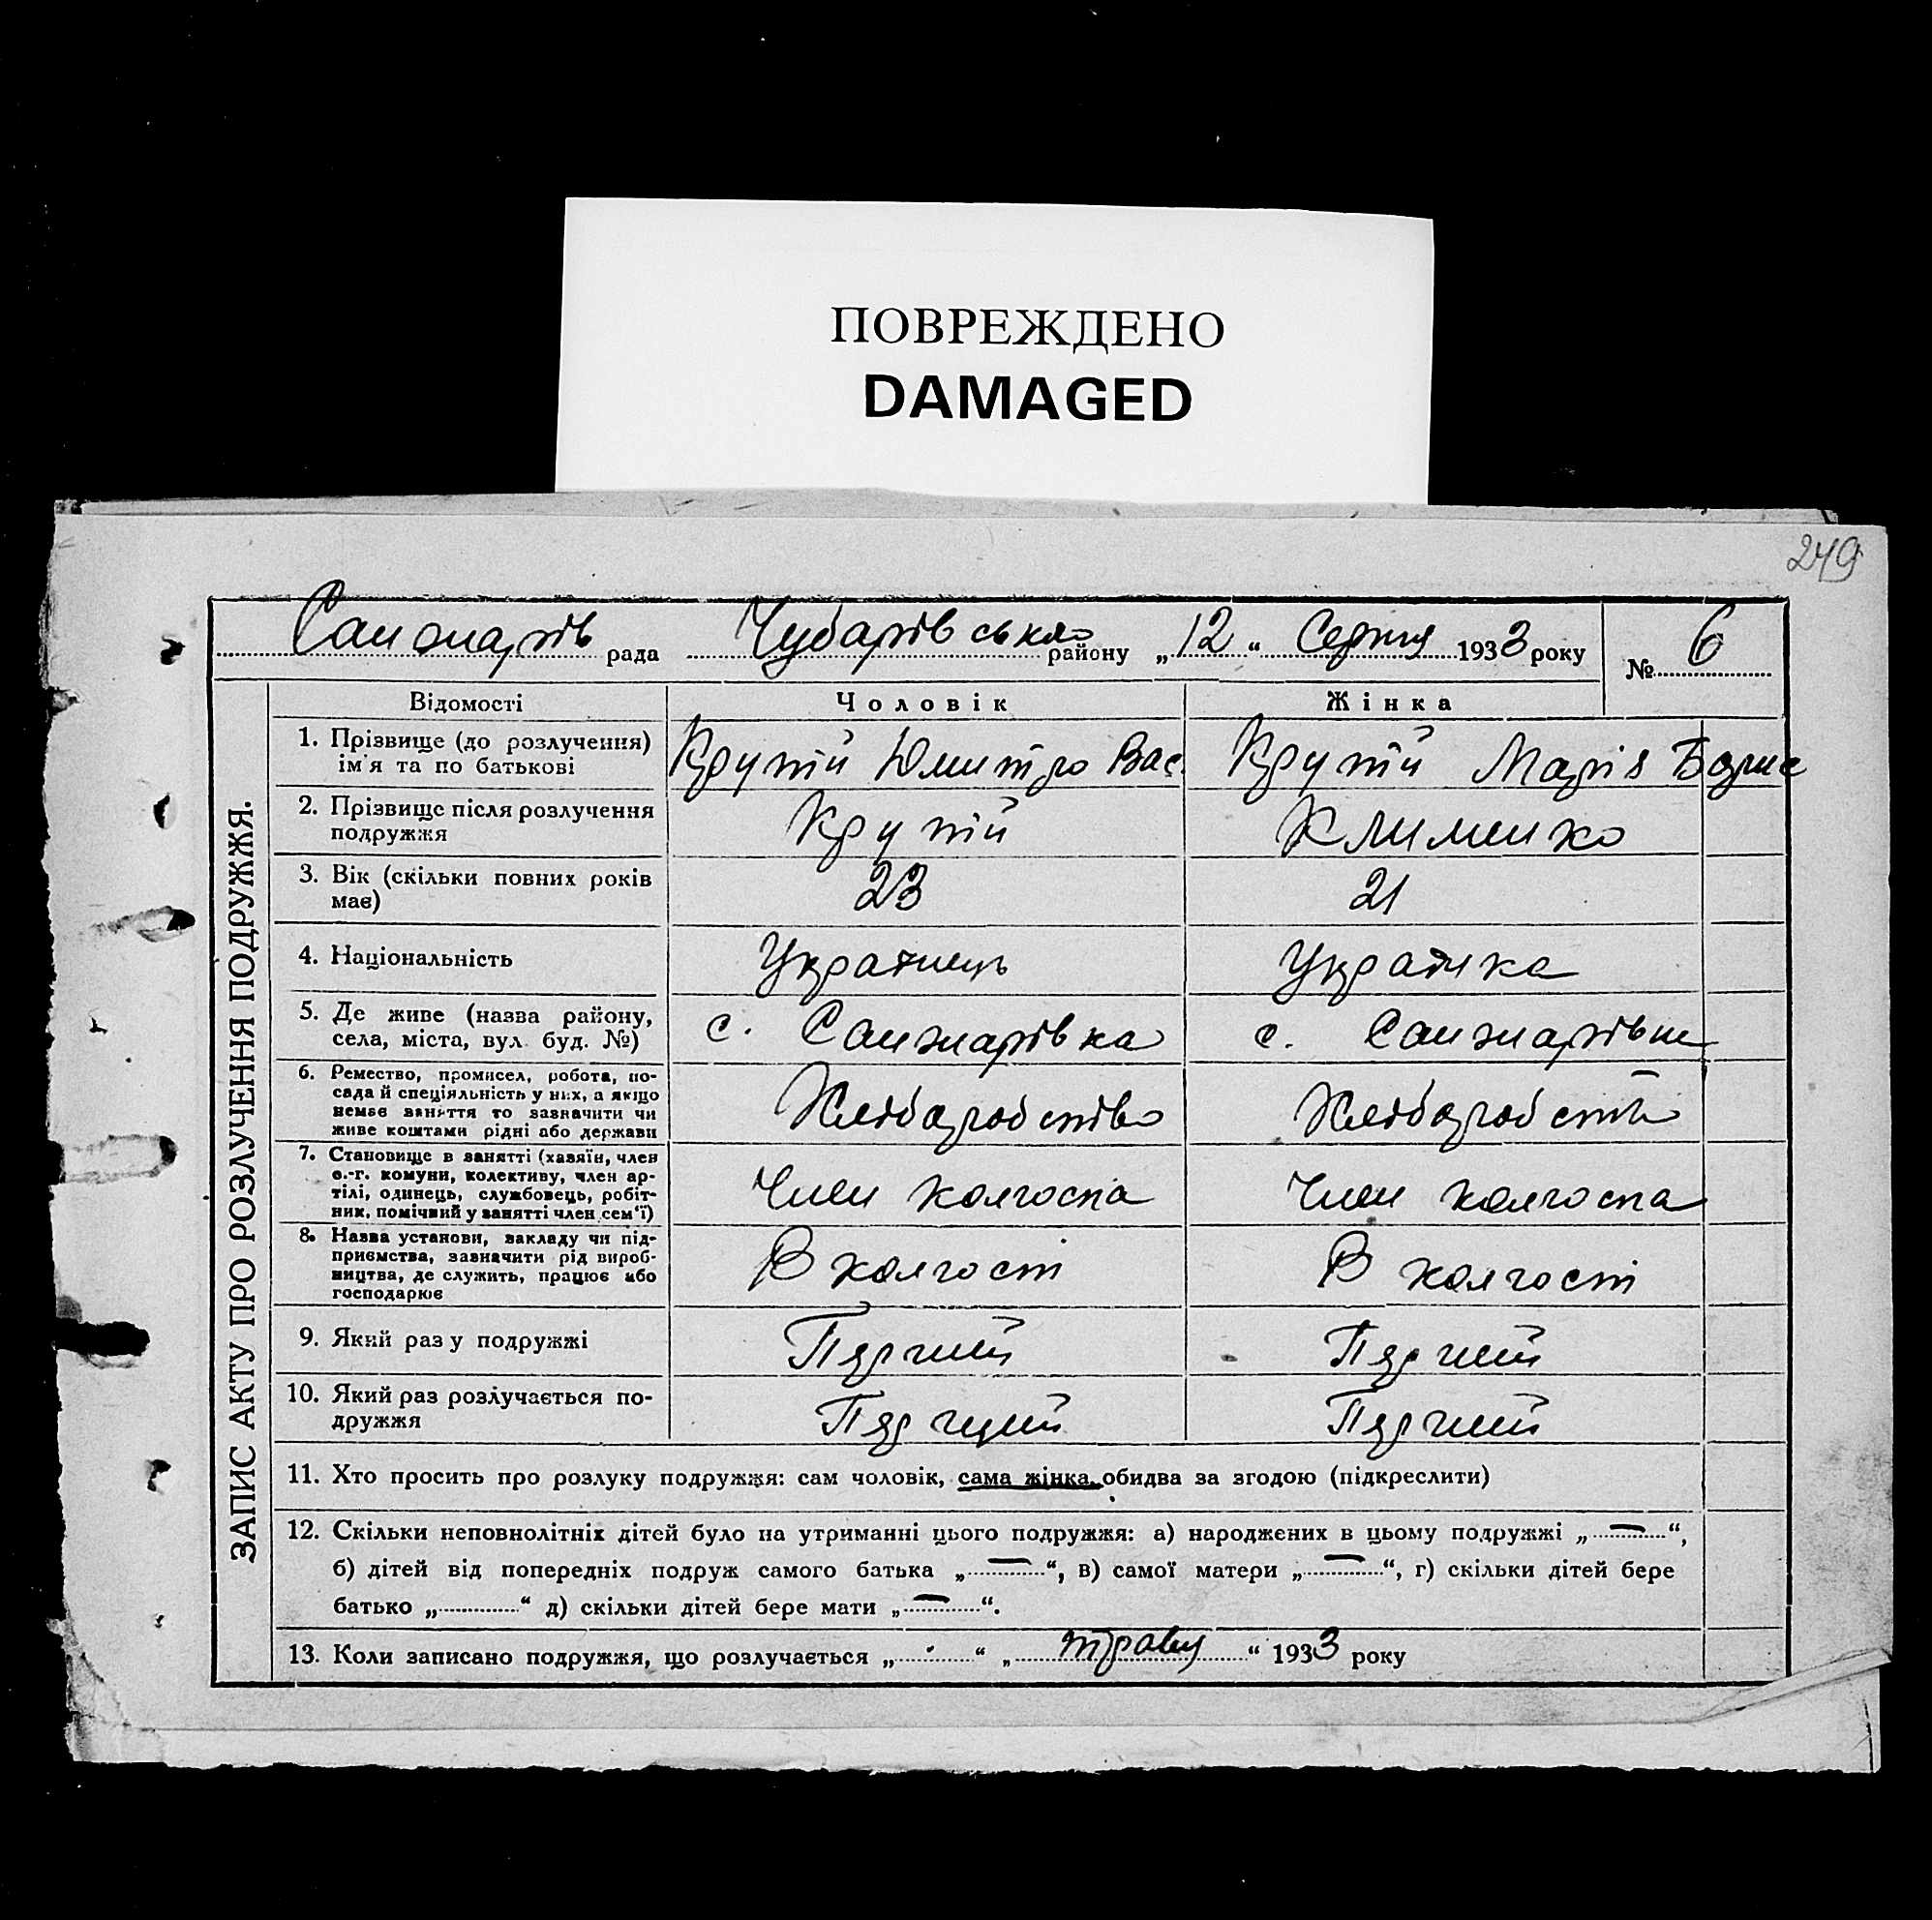 ПОВРЕЖДЕНО
DAMAGED
249
Санжарів рада Чубарівськло району „12“ Серпня 1933 року № 6
ЗАПИС АКТУ ПРО РОЗЛУЧЕННЯ ПОДРУЖЖЯ.
Відомості Чоловік Жінка
1. Прізвище (до розлучення) ім'я та по батькові Крутій Юмитро Вас. Крутій Марія Борис
2. Прізвище після розлучення подружжя Крутій Клименко
3. Вік (скільки повних років має) 23 21
4. Національність Українець Українка
5. Де живе (назва району, села, міста, вул. буд. №) с. Санжарівка с. Санжарівка
6. Ремество, промисел, робота, по-
сада й спеціяльність у них, а якщо
немає заняття то зазначити чи
живе коштами рідні або держави Хліборобство Хліборобство
7. Становище в занятті (хазяїн, член
с.-г. комуни, колективу, член ар-
тілі, одинець, службовець, робіт-
ник, помічний у занятті член сем'ї) Член колгоспа Член колгоспа
8. Назва установи, закладу чи під-
приємства, зазначити рід вироб-
ництва, де служить, працює або
господарює В колгості В колгості
9. Який раз у подружжі Пярший Пярший
10. Який раз розлучається по-
дружжя Пярший Пярший
11. Хто просить про розлуку подружжя: сам чоловік, сама жінка, обидва за згодою (підкреслити)
12. Скільки неповнолітніх дітей було на утриманні цього подружжя: а) народжених в цьому подружжі „—“,
б) дітей від попередніх подруж самого батька „—“, в) самої матери „—“, г) скільки дітей бере
батько „......“ д) скільки дітей бере мати „—“.
13. Коли записано подружжя, що розлучається „......“ „травня“ 1933 року